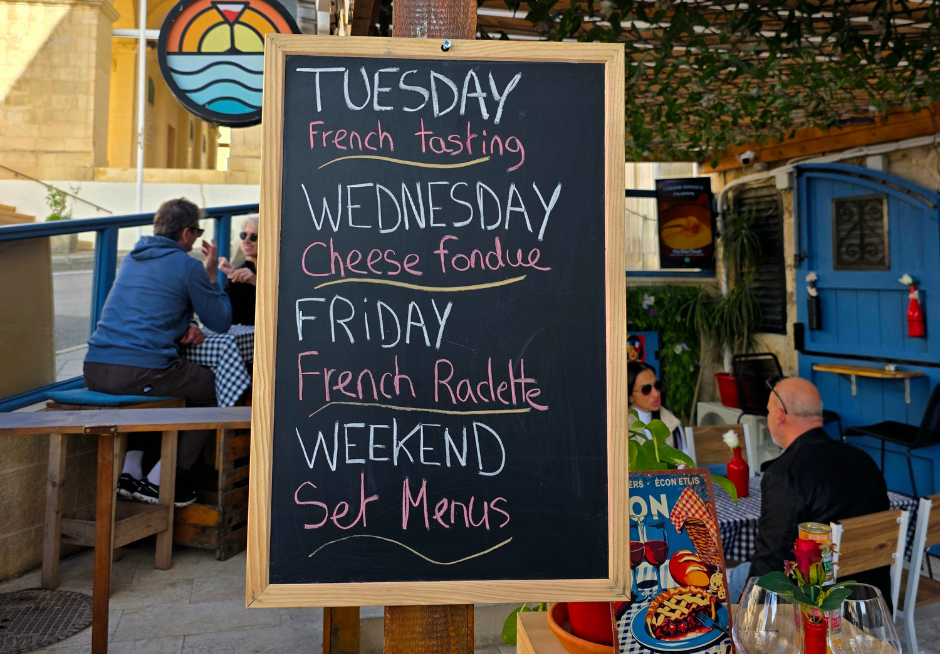 TUESDAY
French tasting
WEDNESDAY
Cheese fondue
FRiDAY
French Raclette
WEEKEND
Set Menus
ÉCON ETLIS
ON